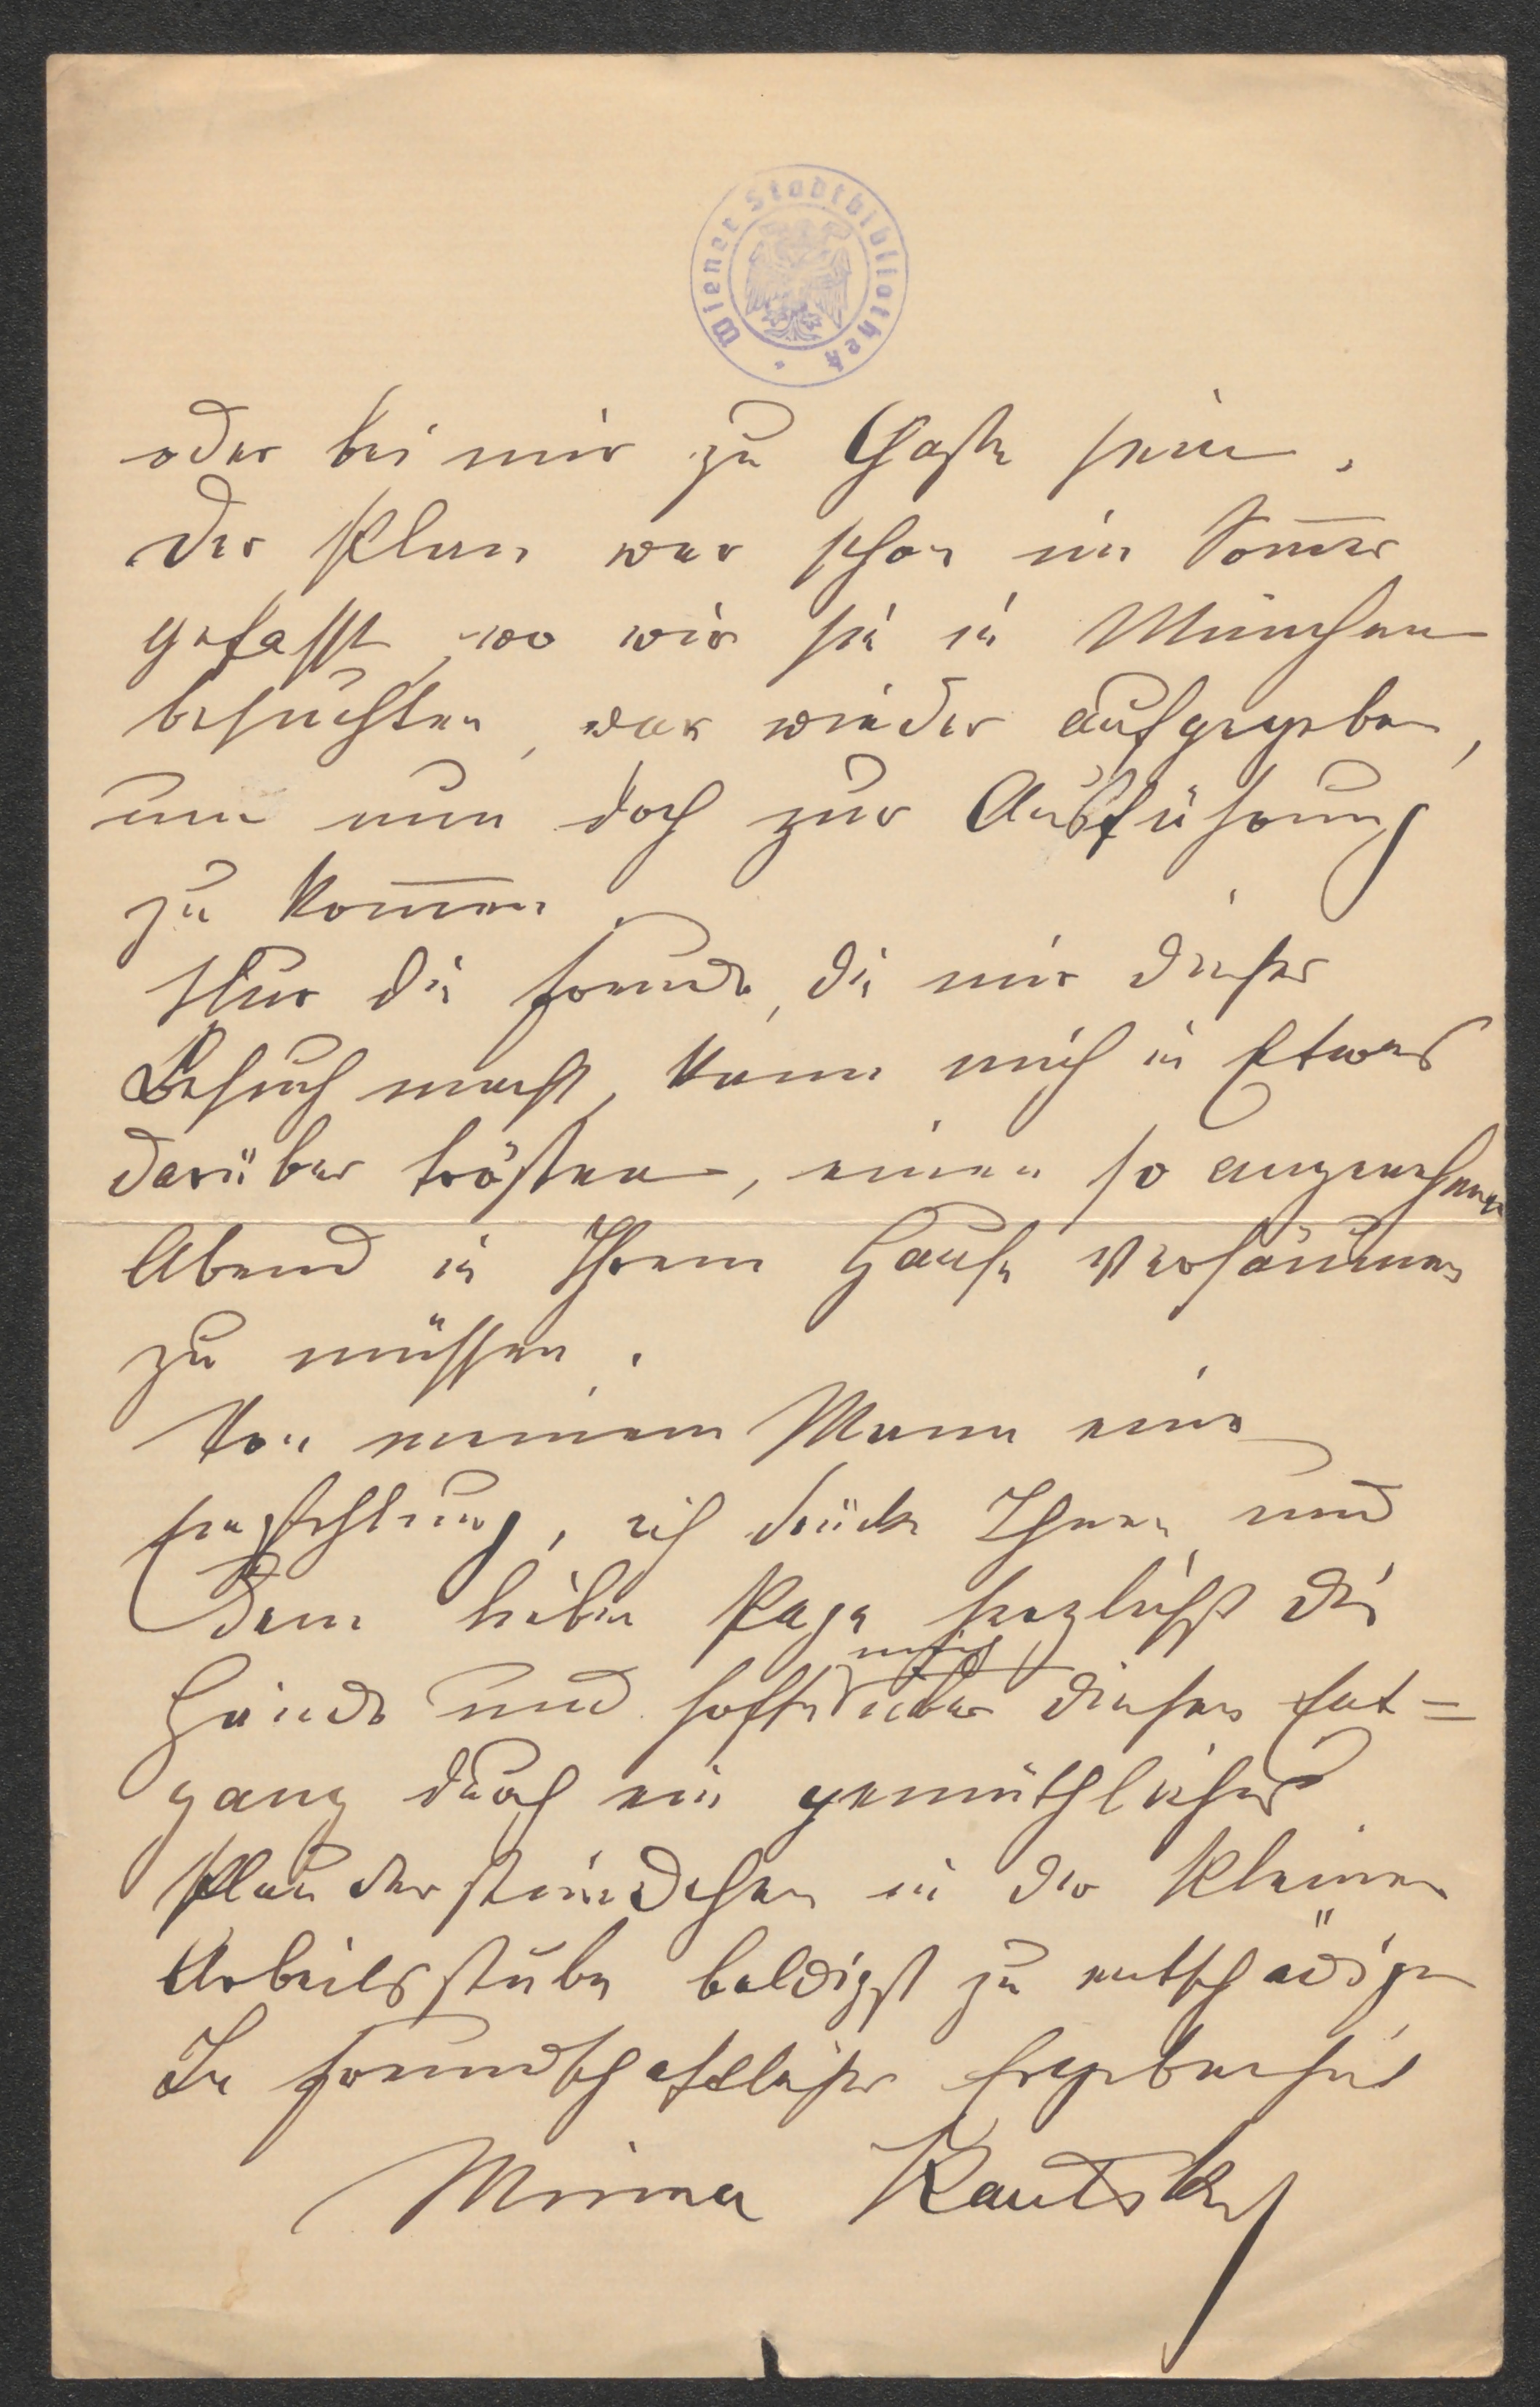 Wiener Stadtbibliothek
oder bei mir zu Gaste sein.
Der Plan war schon im Som̅er
gefasst, wo wir sie in München
besuchten, war wieder aufgegeben,
um nun doch zur Ausführung
zu kom̅en.
Nur die Freude, die mir dieser
Besuch macht, kann mich in Etwas
darüber trösten, einen so angenehmen
Abend in Ihrem Hause versäumen
zu müssen.
Von meinem Mann eine
Empfehlung, ich drücke Ihnen und
dem lieben Page herzlichst die
Hände und hoffe mich über diesen Ent=
gang durch ein gemüthliches
Plauderstündchen in der kleinen
Arbeitsstube baldigst zu entschädigen
In freundschaftlicher Ergebenheit
Minna Kautsky